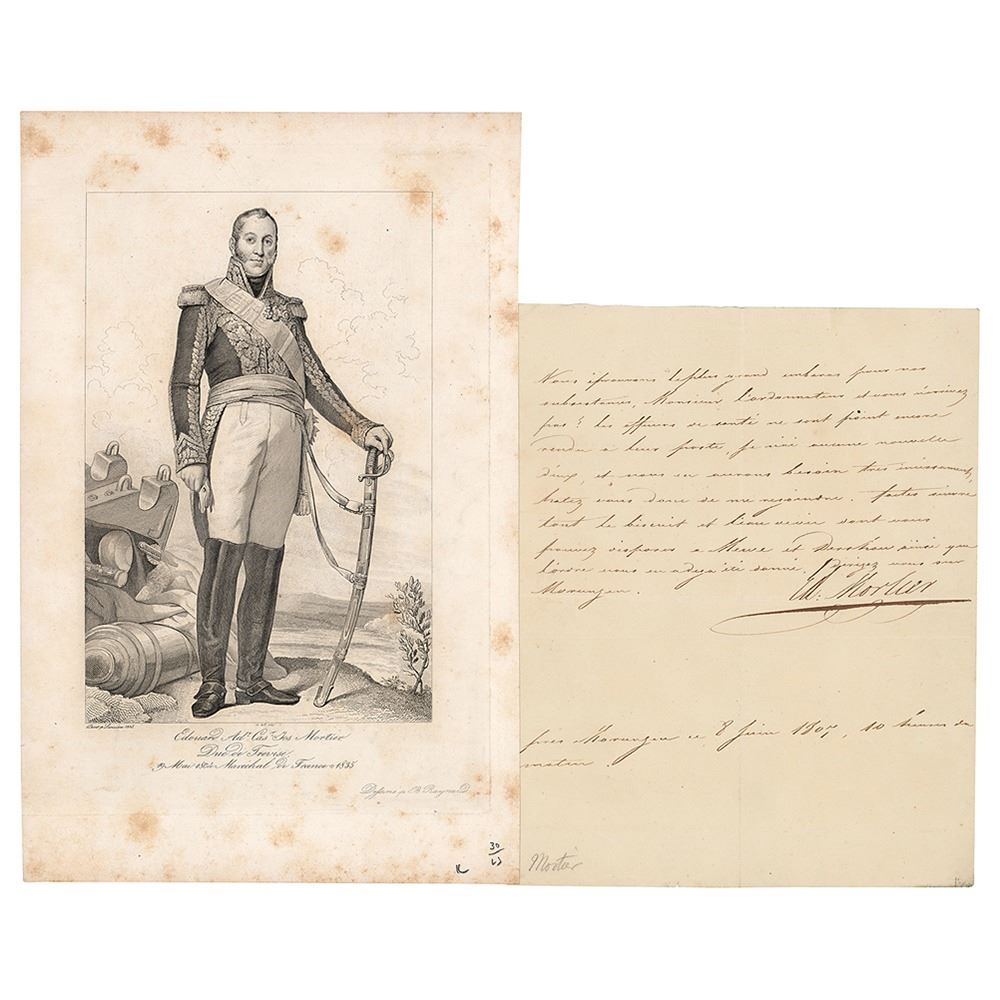 Edouard Ad. Cas. Jos Mortier
Duc de Trevise
Mai 1804 Maréchal de France 1835
Dessine p. B. Raynaud
30
Nous éprouvons le plus grand embaras pour nos
subsistances, Monsieur l'ordonnateur et vous n'arrivez
pas! les officiers de santé ne sont point encore
rendu a leur poste, je n'ai aucune nouvelle
d'eux, et nous en aurons besoin tres incessament,
hatez vous donc de me rejoindre. faites suivre
tout le biscuit et l'eau de vie dont vous
pouvez disposer a Mewe et Dirschau ainsi que
l'ordre vous en a deja été donné. Dirigez vous sur
Morungen.
Ed. Mortier
près Morungen ce 8 Juin 1807, 10 heures du
matin.
Mortier